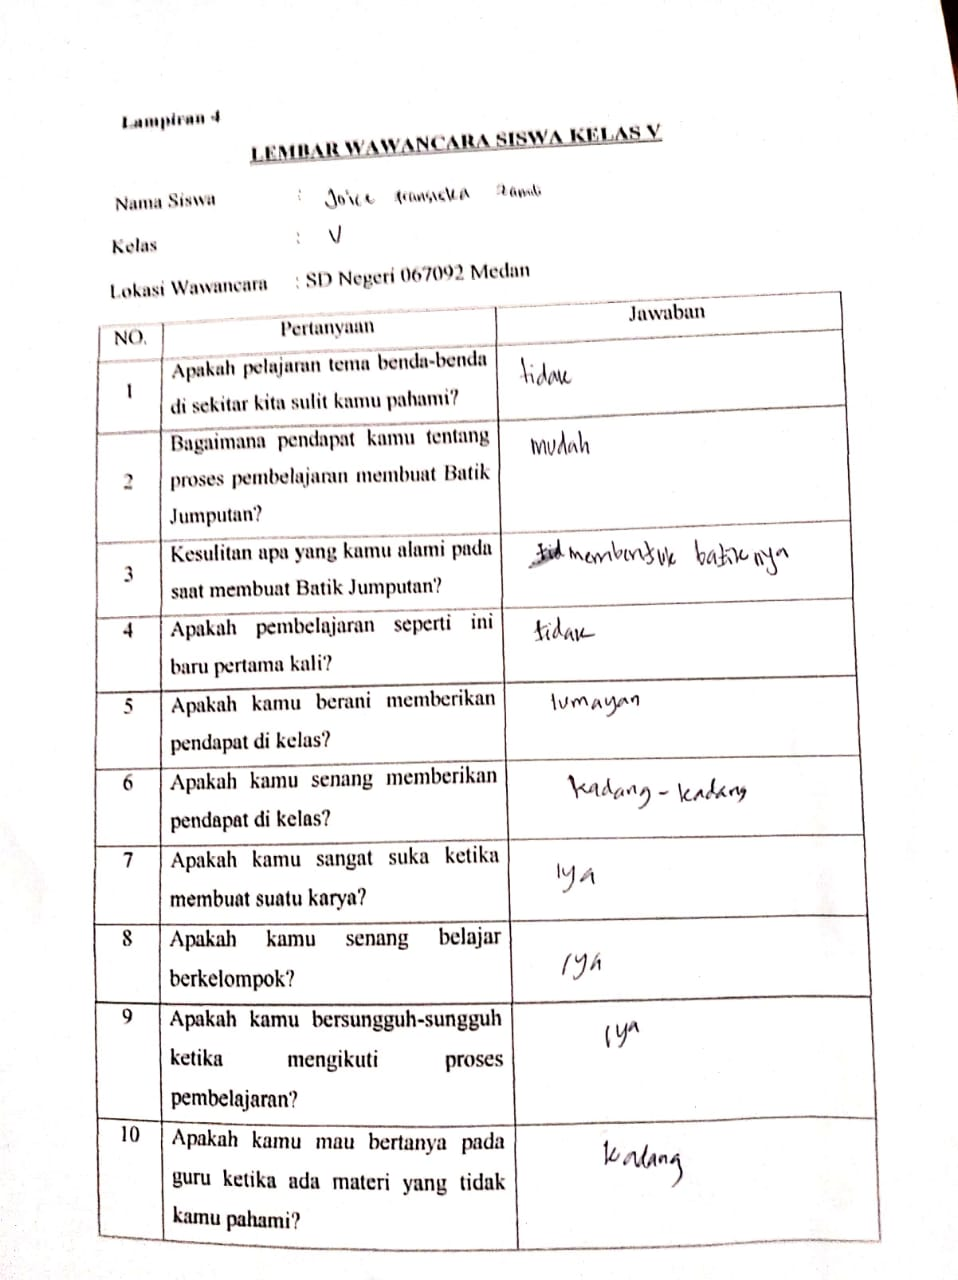 Lampiran 4
LEMBAR WAWANCARA SISWA KELAS V
Nama Siswa : Joice
Kelas : V
Lokasi Wawancara : SD Negeri 067092 Medan
NO. Pertanyaan Jawaban
1 Apakah pelajaran tema benda-benda
di sekitar kita sulit kamu pahami? tidak
2 Bagaimana pendapat kamu tentang
proses pembelajaran membuat Batik
Jumputan? mudah
3 Kesulitan apa yang kamu alami pada
saat membuat Batik Jumputan? membentuk batiknya
4 Apakah pembelajaran seperti ini
baru pertama kali? tidak
5 Apakah kamu berani memberikan
pendapat di kelas? lumayan
6 Apakah kamu senang memberikan
pendapat di kelas? kadang-kadang
7 Apakah kamu sangat suka ketika
membuat suatu karya? Iya
8 Apakah kamu senang belajar
berkelompok? Iya
9 Apakah kamu bersungguh-sungguh
ketika mengikuti proses
pembelajaran? Iya
10 Apakah kamu mau bertanya pada
guru ketika ada materi yang tidak
kamu pahami? kadang